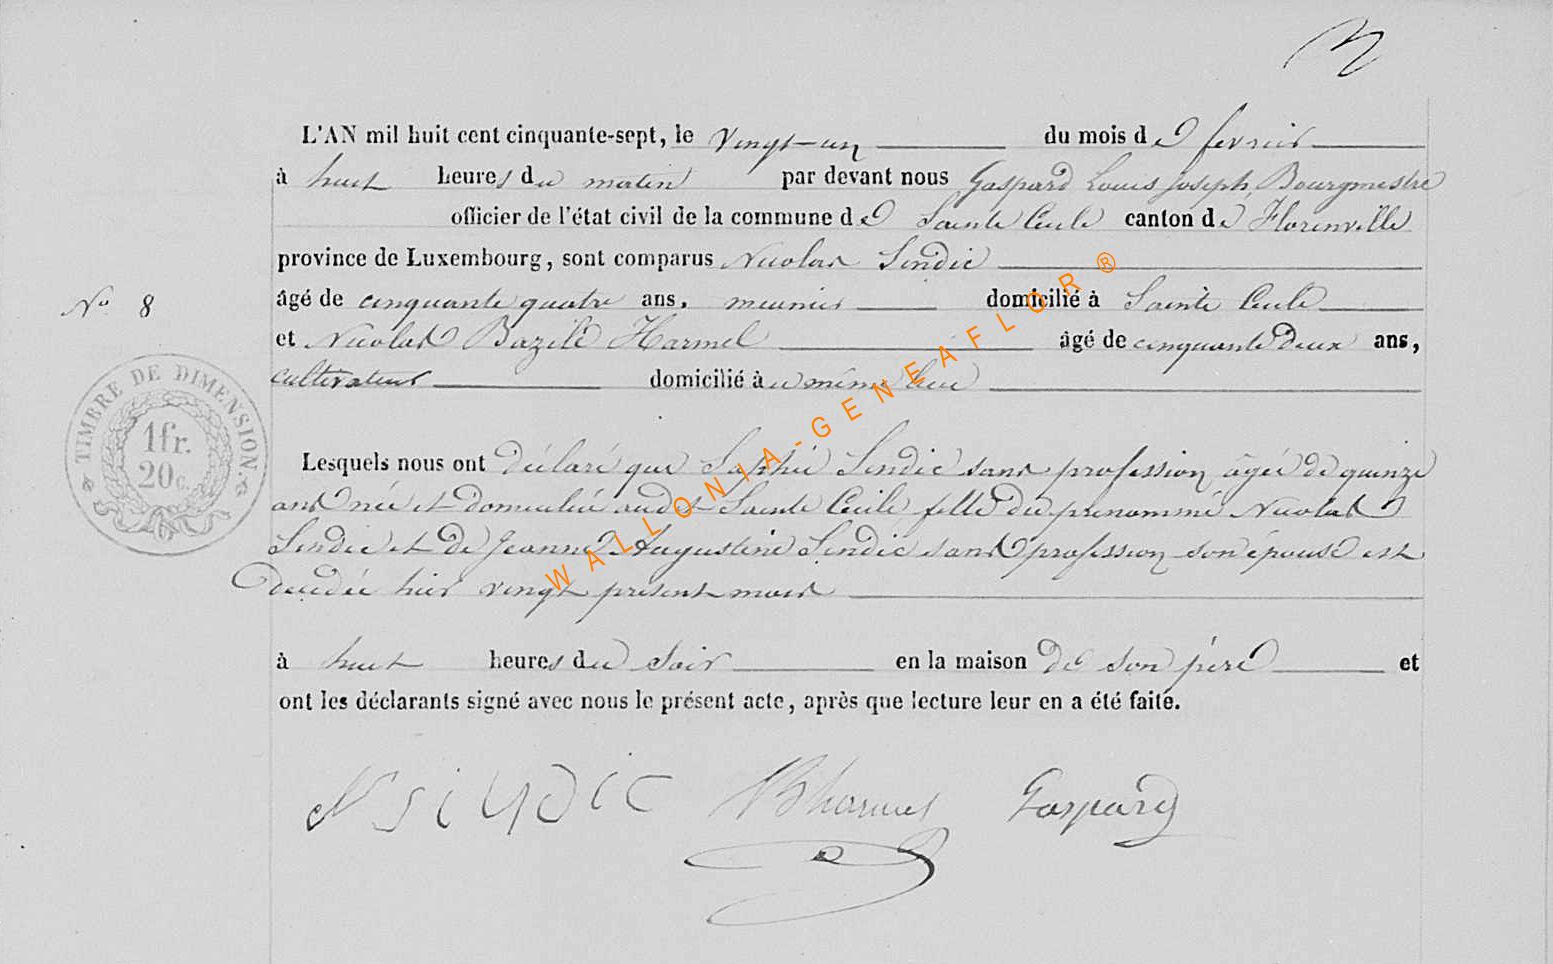 L'AN mil huit cent cinquante-sept, le vingt-un du mois de fevrier
à huit heures du matin par devant nous Gaspard Louis Joseph, Bourgmestre
officier de l'état civil de la commune de Sainte Cecile canton de Florenville
province de Luxembourg, sont comparus Nicolas Sindic
N° 8
âgé de cinquante quatre ans, meunier domicilié à Sainte Cecile
et Nicolas Bazile Harmel âgé de cinquante deux ans,
cultivateur domicilié à u même lieu
TIMBRE DE DIMENSION
1fr.
20c.
Lesquels nous ont déclaré que Sophie Sindic sans profession âgée de quinze
ans née et domiciliée audit Sainte Cécile fille du prénommé Nicolas
Sindic et de Jeanne Augustine Sindic sans profession son épouse est
decédée hier vingt présent mois
à huit heures du soir en la maison de son père et
ont les déclarants signé avec nous le présent acte, après que lecture leur en a été faite.
N Sindic NBharmel Gaspard
WALLONIA-GENEAFLOR®